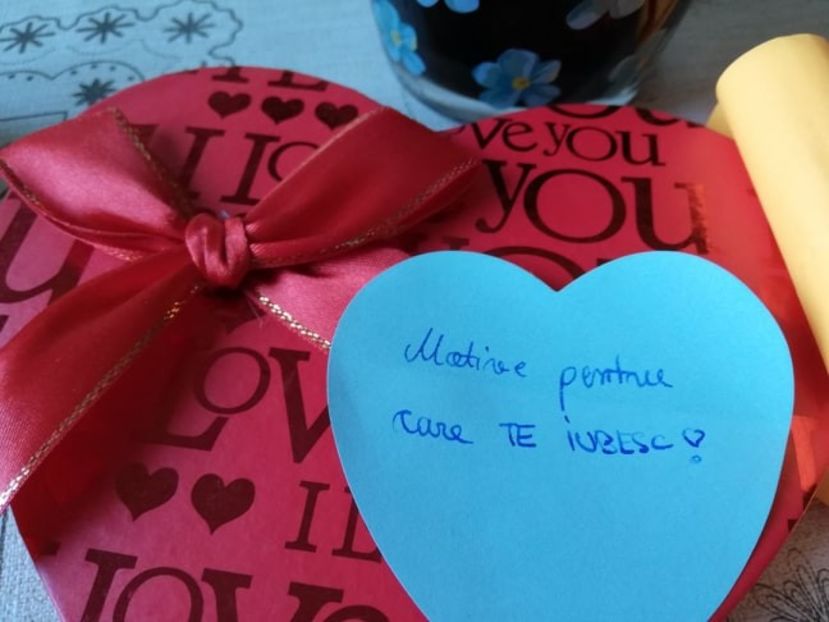 I LOVE
I LO
ve you
you
LOVE
I L
LOVE
Motive pentru
care TE IUBESC